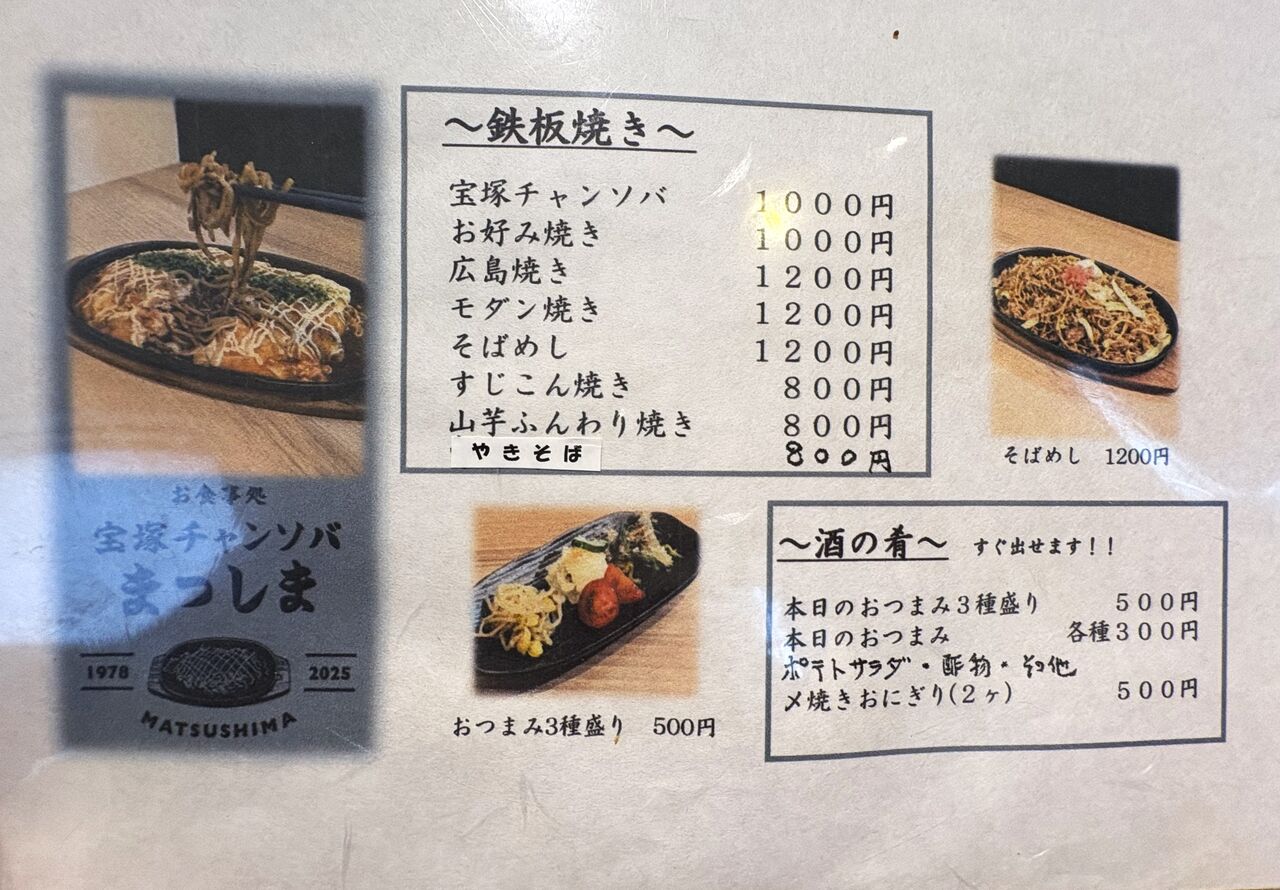 お食事処
宝塚チャンソバ
まつしま
1978 2025
MATSUSHIMA
～鉄板焼き～
宝塚チャンソバ 1000円
お好み焼き 1000円
広島焼き 1200円
モダン焼き 1200円
そばめし 1200円
すじこん焼き 800円
山芋ふんわり焼き 800円
やきそば 800円
そばめし 1200円
おつまみ3種盛り 500円
～酒の肴～ すぐ出せます！！
本日のおつまみ3種盛り 500円
本日のおつまみ 各種300円
ポテトサラダ・酢物・その他
〆焼きおにぎり(2ヶ) 500円